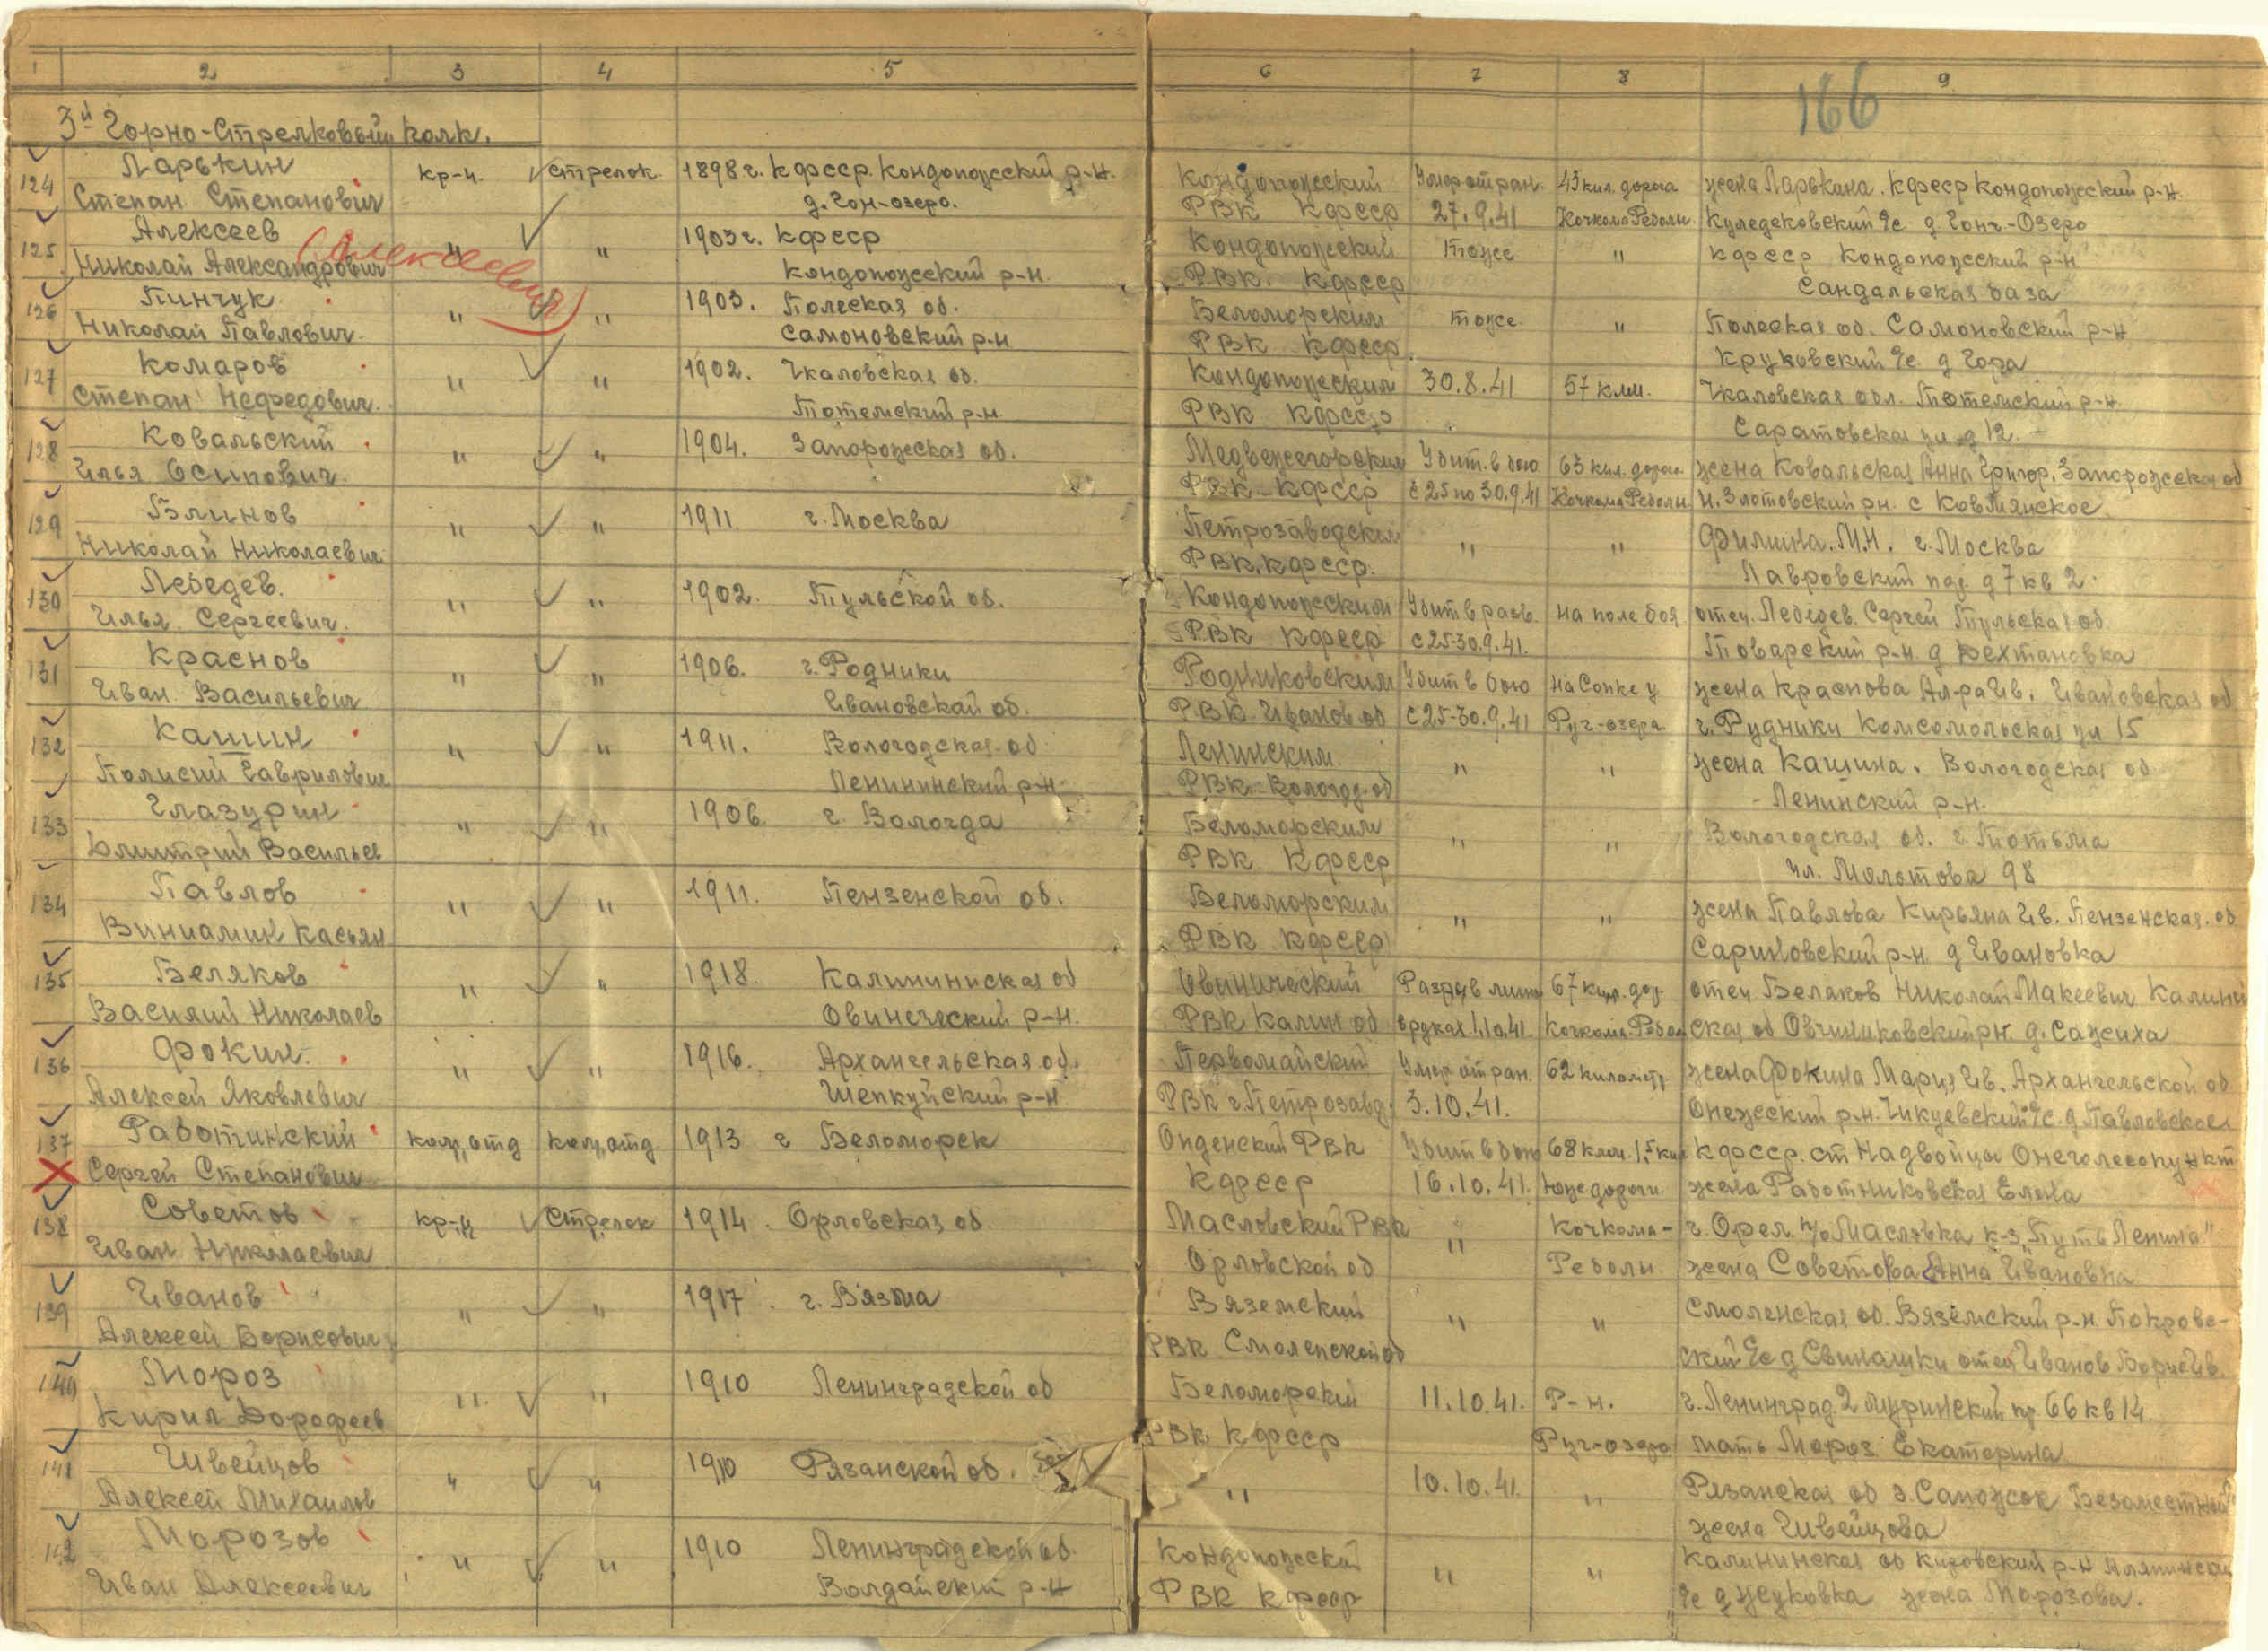 1 2 3 4 5 6 7 8 9
166
3й Горно-Стрелковый полк.
124 Ларькин кр-ц. стрелок 1898г. КФССР. Кондопожский р-н. Кондопожский Умер от ран. 43 кил. дорога жена Ларькина. КФССР Кондопожский р-н.
Степан Степанович д. Гон-озеро. РВК КФССР 27.9.41 Кочкома Реболы Куледековский с/с д Гонч-Озеро
125 Алексеев " " 1903г. КФССР Кондопожский тоже " КФССР Кондопожский р-н
Николай Александрович (Алексеевич) Кондопожский р-н. РВК. КФССР Сандальская база
126 Пинчук " " 1903. Полеская об. Беломорским тоже " Полеская об. Самоновский р-н
Николай Павлович. Самоновский р-н РВК КФССР. Круковский с/с д Года
127 Комаров " " 1902. Чкаловская об. Кондопожским 30.8.41 57 клм. Чкаловская обл. Тотемский р-н.
Степан Нефедович. Тотемский р-н. РВК КФССР Саратовская ул д 12.
128 Ковальский " " 1904. Запорожская об. Медвежегорским Убит. в бою 63 кил. дорога жена Ковальская Анна Григор. Запорожская об
Илья Осипович. РВК КФССР с 25 по 30.9.41 Кочкома Реболы Н. Злотовский рн. с
129 Блинов " " 1911. г. Москва Петрозаводским " " Филина. М.Н. г. Москва
Николай Николаевич РВК. КФССР. Лавровский пер д 7 кв 2.
130 Лебедев. " " 1902. Тульской об. Кондопожским Убит в разв. на поле боя отец. Лебедев. Сергей Тульская об.
Илья Сергеевич. РВК КФССР с 25-30.9.41. Товарский р-н. д Бехтановка
131 Краснов " " 1906. г. Родники Родниковским Убит в бою на Сопке у жена Краснова Ал-ра Ив. Ивановская об
Иван Васильевич Ивановской об. РВК Иванов. об с 25-30.9.41 Руг-озера г. Рудники Комсомольская ул 15
132 Кашин " " 1911. Вологодская об Ленинским " " жена Кашина. Вологодская об
Полисий Гаврилович Ленининский р-н. РВК Вологод. об Ленинский р-н.
133 Глазурин " " 1906. г. Вологда Беломорским " " Вологодская об. г. Тотьма
Дмитрий Васильев РВК КФССР ул. Молотова 98
134 Павлов " " 1911. Пензенской об. Беломорским " " жена Павлова Кирьяна Ив. Пензенская. об
Виниамин Касьян РВК КФССР Сариловский р-н. д Ивановка
135 Беляков " " 1918. Калининиская об Овинический мина 67 кил. дор. отец Беляков Николай Макеевич Калинин
Василий Николаев Овинеческий р-н. РВК Калин об в руках 1.10.41. Кочкома-Ребол ская об Овчинниковский рн. д. Сажиха
136 Фокин. " " 1916. Архангельская об. Первомайский Умер от ран. 62 километр жена Фокина Мария Ив. Архангельской об
Алексей Яковлевич Шепкуйский р-н РВК г. Петрозавд. 3.10.41. Онежский р-н. Чикуевский с/с. д Павловское
137 Работинский ком. отд ком. отд 1913 г Беломорск Онденский РВК Убит в бою 68 клм. 1,5 кил КФССР. ст Надвойцы Онеголесопункт
Сергей Степанович КФССР 16.10.41. Юже дороги жена Работниковская Елена
138 Советов кр-ц Стрелок 1914. Орловская об. Масловский РВК " Кочкома- г. Орел п/о Масловка к-з „Путь Ленина"
Иван Николаевич Орловской об Реболы жена Советова Анна Ивановна
139 Иванов " " 1917. г. Вязма Вяземский " " Смоленская об. Вяземский р-н. Покров-
Алексей Борисович РВК Смоленской об ский с/с д Свинашки отец Иванов Борис Ив.
140 Мороз " " 1910 Ленинградской об Беломорский 11.10.41. Р-н. г. Ленинград 2 Муринский пр. 66 кв 14
Кирил Дорофеев РВК КФССР Руг-озера мать Мороз Екатерина
141 Швейцов " " 1910 Рязанской об. " 10.10.41. " Рязанская об з. Сапожок
Алексей Михаилов жена Швейцова
142 Морозов " " 1910 Ленинградской об. Кондопожский " " Калининская об Кировский р-н
Иван Алексеевич Волдайский р-н РВК КФССР с/с д Жуковка жена Морозова.